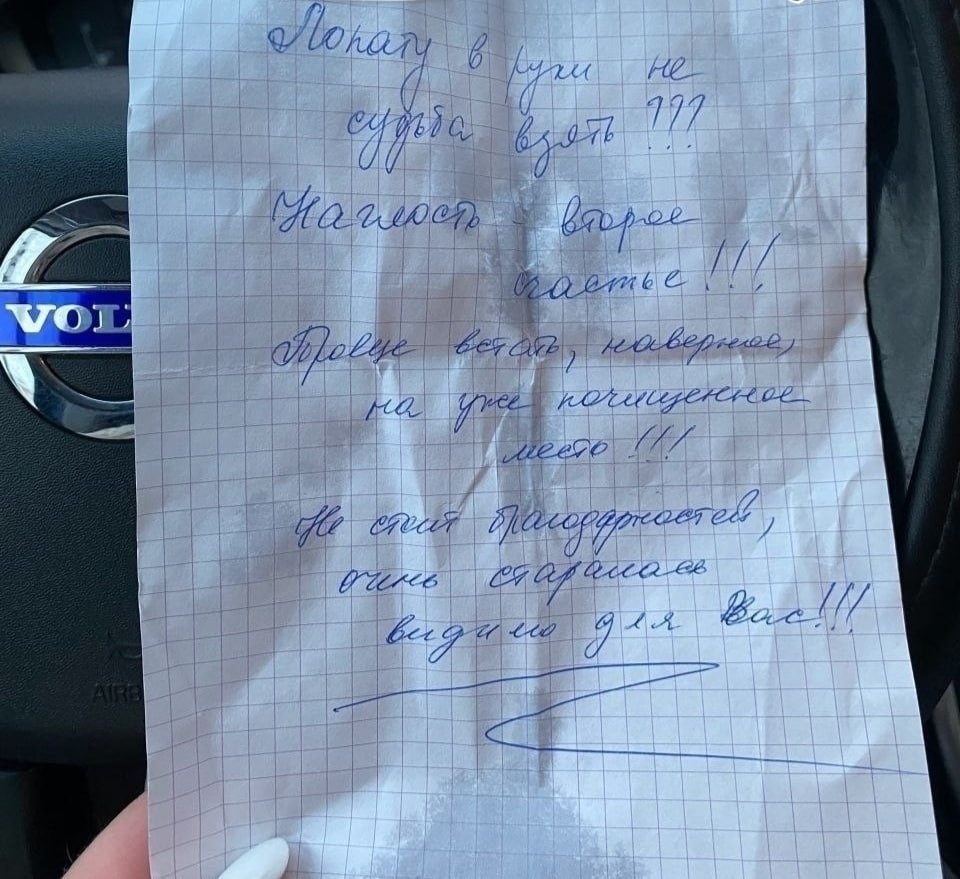 Лопату в руки не
судьба взять???
Наглость - второе
счастье!!!
Проще встать, наверное,
на уже почищенное
место!!!
Не стоит благодарностей,
очень старалась
видимо для Вас!!!
VOL
AIRB